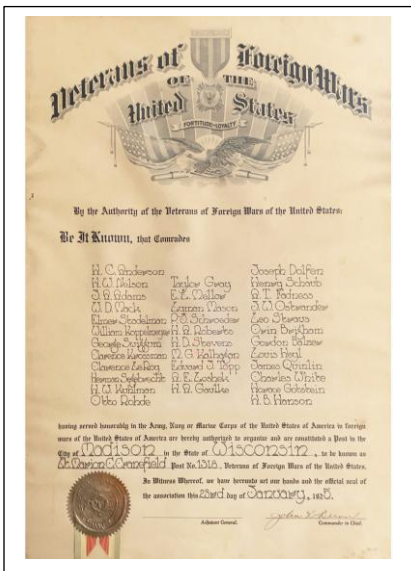 Veterans of Foreign Wars
OF THE
United States
FORTITUDE-LOYALTY
By the Authority of the Veterans of Foreign Wars of the United States:
Be It Known, that Comrades
H. C. Anderson
H. W. Nelson
W. D. Mack
Elmer Stadelman
William
George
Clarence
Clarence LeRoy
Herman
H. W. Kuhlman
Otto Rohde
Taylor Gray
E. E. Mellow
Lyman Mason
Schroeder
H. A. Roberts
H. D. Stevens
M. G.
Edward J. Topp
A. E.
H. A. Gaulke
Joseph Dolfen
Henry Schaub
A. T. Fadness
J. W. Ostrander
Leo Straus
Orin
Gordon
Louis
James Quinlin
Charles White
Horace
H. S. Hanson
having served honorably in the Army, Navy or Marine Corps of the United States of America in foreign
wars of the United States of America are hereby authorized to organize and are constituted a Post in the
City of Madison in the State of Wisconsin, to be known as
Lt. Marion C. Cranefield Post No. 1318, Veterans of Foreign Wars of the United States.
In Witness Whereof, we have hereunto set our hands and the official seal of
the association this 23rd day of January, 1925.
Adjutant General.
Commander in Chief.